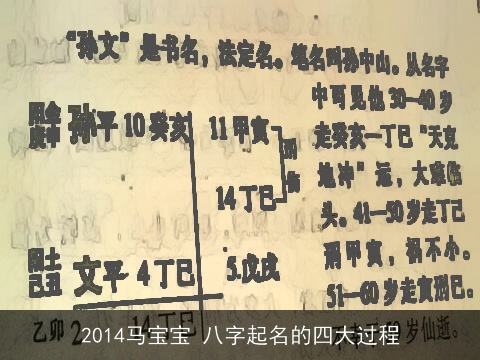 “孙文”是书名，法定名。笔名叫孙中山。从名字
中可见他30—40岁
走癸亥—丁巳“天克
地冲”运，大难临
头。41—50岁走丁己
刑甲寅，祸不小。
51—60岁走寅刑巳。
岁仙逝。
阳金
庚申
孙平 10癸亥
11甲寅
14丁巳
阴土
己丑
文平 4丁巳
5.戊戌
乙卯 2
14丁巳
2014马宝宝 八字起名的四大过程